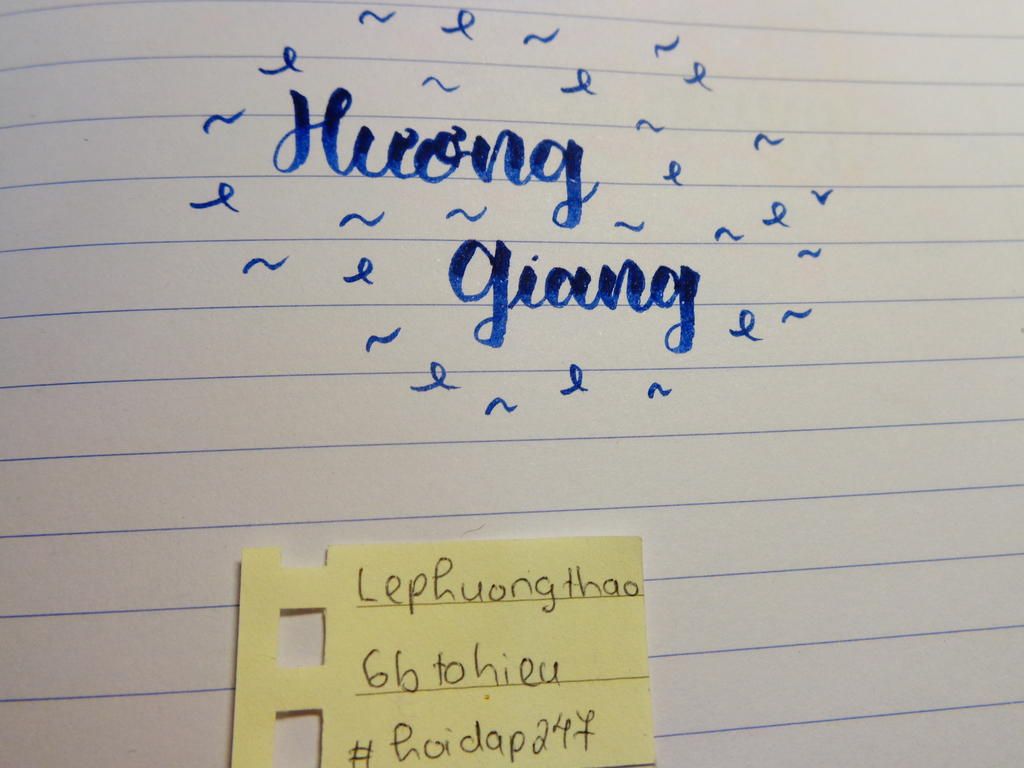 Hương
Giang
Lephuongthao
6b tohieu
# hoidap247